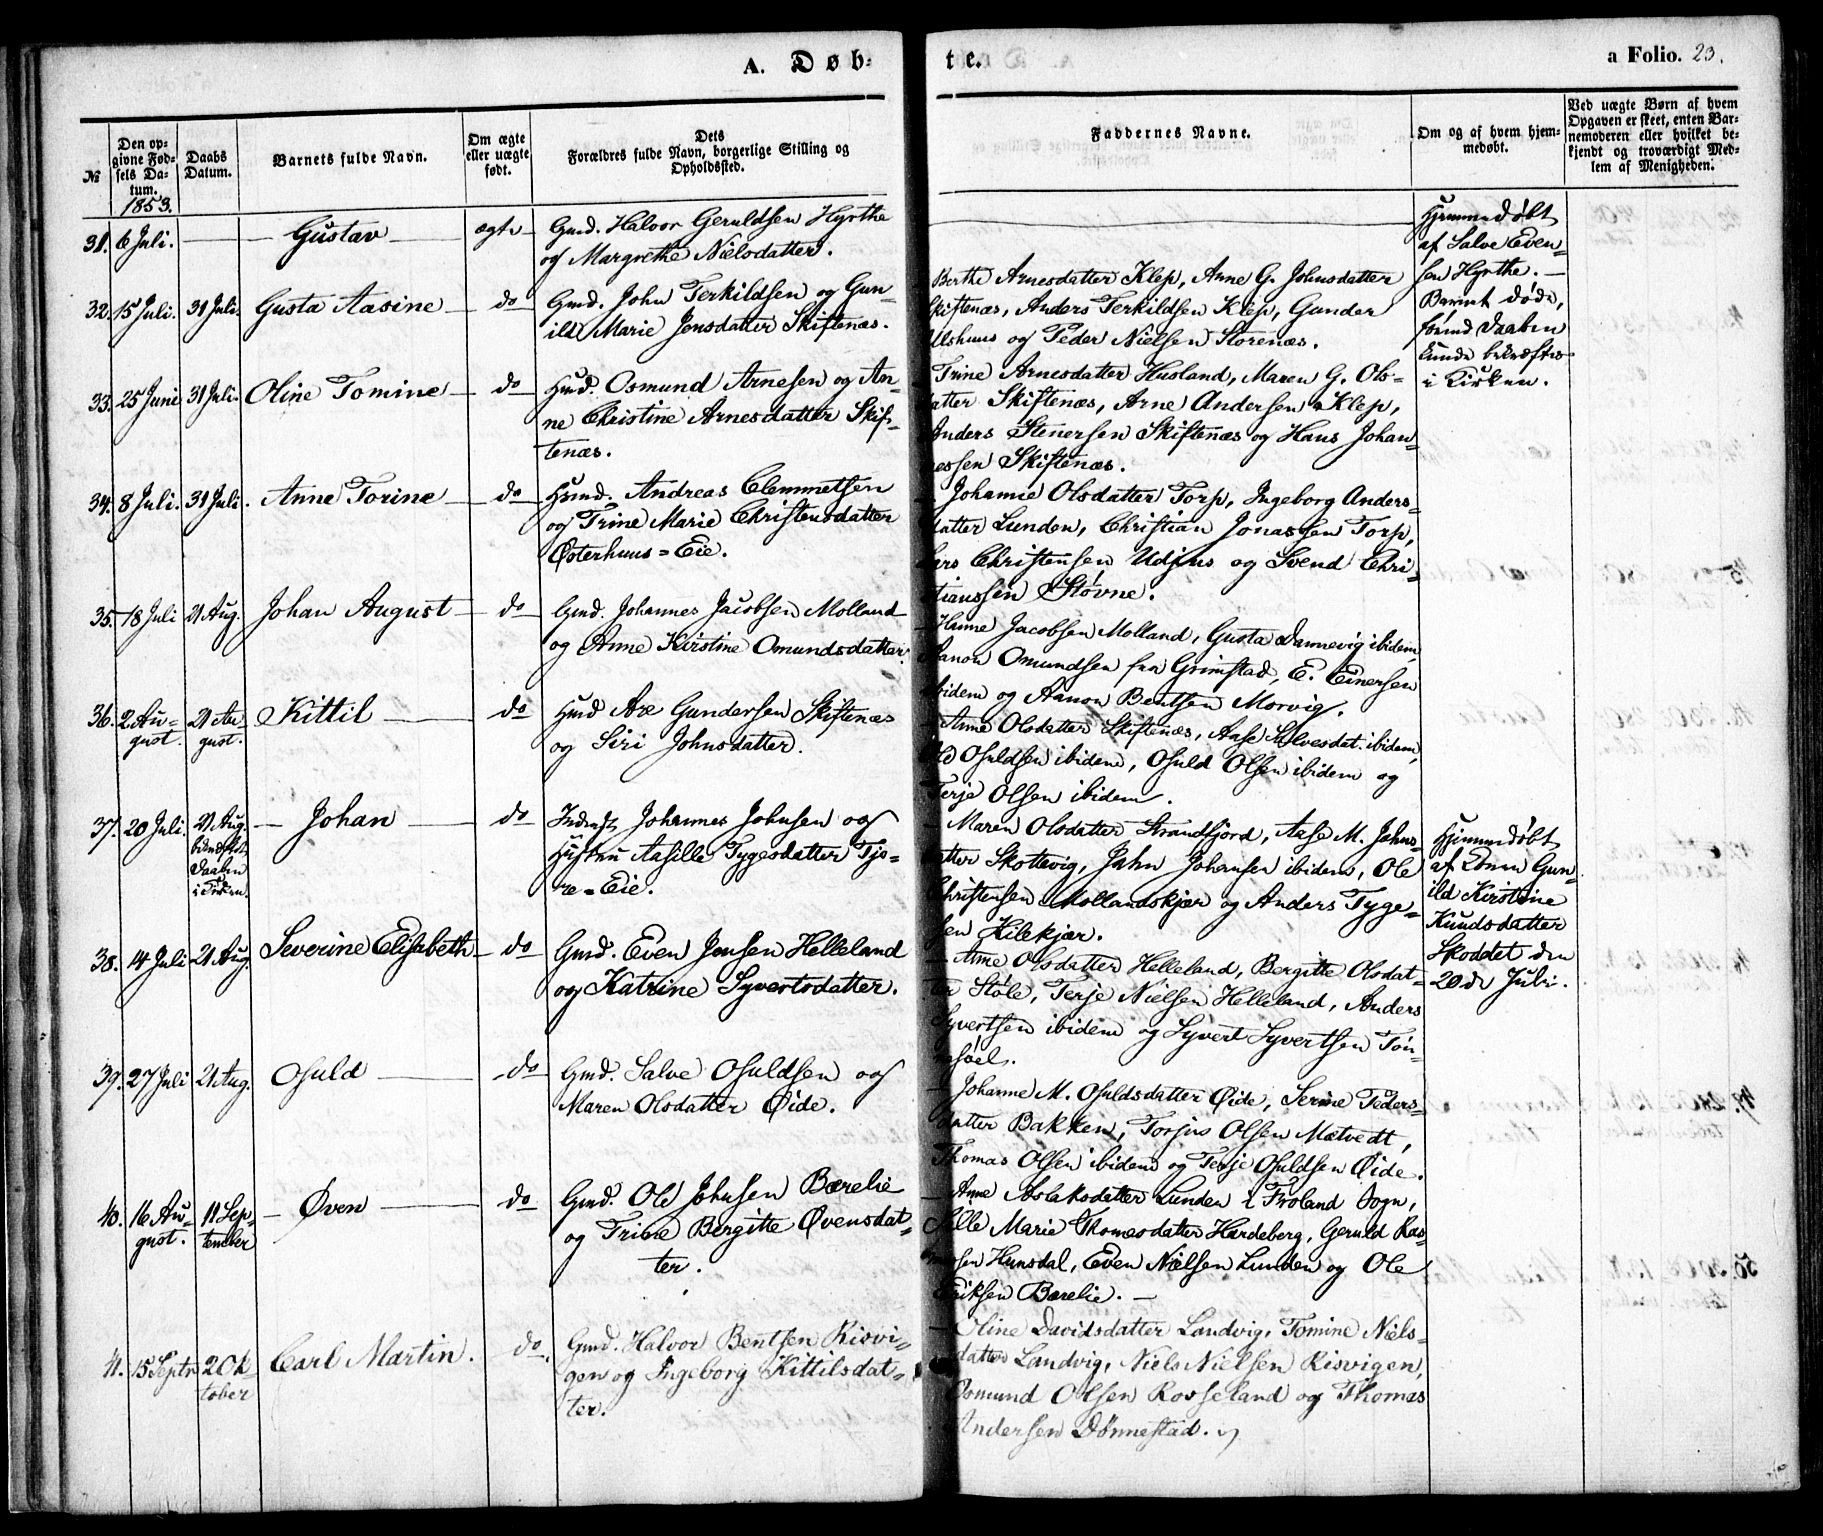 A. Døb-
te.
a Folio. 23.
№
Den op-
givne Fød-
sels Da-
tum.
1853.
Daabs
Datum.
Barnets fulde Navn.
Om ægte
eller uægte
født.
Dets
Forældres fulde Navn, borgerlige Stilling og
Opholdssted.
Faddernes Navne.
Om og af hvem hjem-
medøbt.
Ved uægte Børn af hvem
Opgaven er skeet, enten Bar-
nemoderen eller hvilket be-
kjendt og troværdigt Med-
lem af Menigheden.
31. 6 Juli. — Gustav — ægte
Gmd. Halvor Geruldsen Hyrthe
og Margrethe Nielsdatter.
Hjemmedøbt
af Salve Even-
sen Hyrthe. —
Barnet døde,
førend Daaben
kunde bekræftes
i Kirken.
32. 15 Juli. 31 Juli. Gusta Aasine — do
Gmd. John Terkildsen og Gun-
ild Marie Jensdatter Skiftenæs.
Berthe Arnesdatter Klep, Anne G. Johnsdatter
Skiftenæs, Anders Terkildsen Klep, Gunder
Ulshuus og Peder Nielsen Storenæs.
33. 25 Juni 31 Juli. Oline Tomine — do
Husmd. Osmund Arnesen og An-
ne Christine Arnesdatter Skif-
tenæs.
Trine Arnesdatter Husland, Maren G. Ols-
datter Skiftenæs, Arne Andersen Klep,
Anders Stenersen Skiftenæs og Hans Johan-
nessen Skiftenæs.
34. 8 Juli. 31 Juli. Anne Torine — do
Husmd. Andreas Clemmetsen
og Trine Marie Christensdatter
Østerhuus=Eie.
Johanne Olsdatter Torp, Ingeborg Anders-
datter Lunden, Christian Jonassen Torp,
Lars Christensen Udjus og Svend Chri-
stianssen Støvne.
35. 18 Juli 21 Aug. Johan August — do
Gmd. Johannes Jacobsen Molland
og Anne Kirstine Omundsdatter.
Hanne Jacobsen Molland, Gusta Dannevig ibidem,
Aanon Omundsen fra Grimstad, E. Einersen
ibidem og Aanon Bentsen Morvig.
36. 2 Au-
gust. 21 Au
gust. Kittil — do
Husmd Axe Gundersen Skiftenæs
og Siri Johnsdatter.
Anne Olsdatter Skiftenæs, Aase Salvesdat. ibidem,
Osuldsen ibidem, Osuld Olsen ibidem og
Terje Olsen ibidem.
37. 20 Juli. 21 Aug.
bekræftet
Daaben
i Kirken. — Johan — do
Inderst Johannes Johnsen og
Hustru Aasille Tygesdatter Tjo-
re=Eie.
Maren Olsdatter Strandfjord, Aase M. Johns-
datter Skottevig, Jahn Johansen ibidem, Ole
Christensen Mollandskjær og Anders Tyge-
sen Kilekjær.
Hjemmedøbt
af Konen Gun-
ild Kirstine
Knudsdatter
Skoddet den
20de Juli.
38. 14 Juli 21 Aug. Severine Elisabeth — do
Gmd. Even Jensen Helleland
og Katrine Syvertsdatter.
Anne Olsdatter Helleland, Bergitte Olsdat-
ter Støle, Terje Nielsen Helleland, Anders
Syvertsen ibidem og Syvert Syvertsen Tøn-
nesøel.
39. 27 Juli 21 Aug. Osuld — do
Gmd. Salve Osuldsen og
Maren Olsdatter Øide.
Johanne M. Osuldsdatter Øide, Serine Peders-
datter Bakken, Torjus Olsen Mætvedt,
Thomas Olsen ibidem og Terje Osuldsen Øide.
40. 16 Au-
gust. 11 Sep-
tember — Øven — do
Gmd. Ole Johnsen Bærelie
og Trine Bergitte Øvensdat-
ter.
Anne Aslaksdatter Lunden i Froland Sogn,
Sille Marie Thomesdatter Hardeberg, Geruld Ras-
mussen Hunsdal, Even Nielsen Lunden og Ole
Eriksen Bærelie. —
41. 15 Septr 2 Ok
tober Carl Martin. do
Gmd. Halvor Bentsen Risvi-
gen og Ingeborg Kittilsdat-
ter.
Oline Davidsdatter Landvig, Tomine Niels-
datter Landvig, Niels Nielsen Risvigen,
Osmund Olsen Rosseland og Thomas
Andersen Dønnestad.